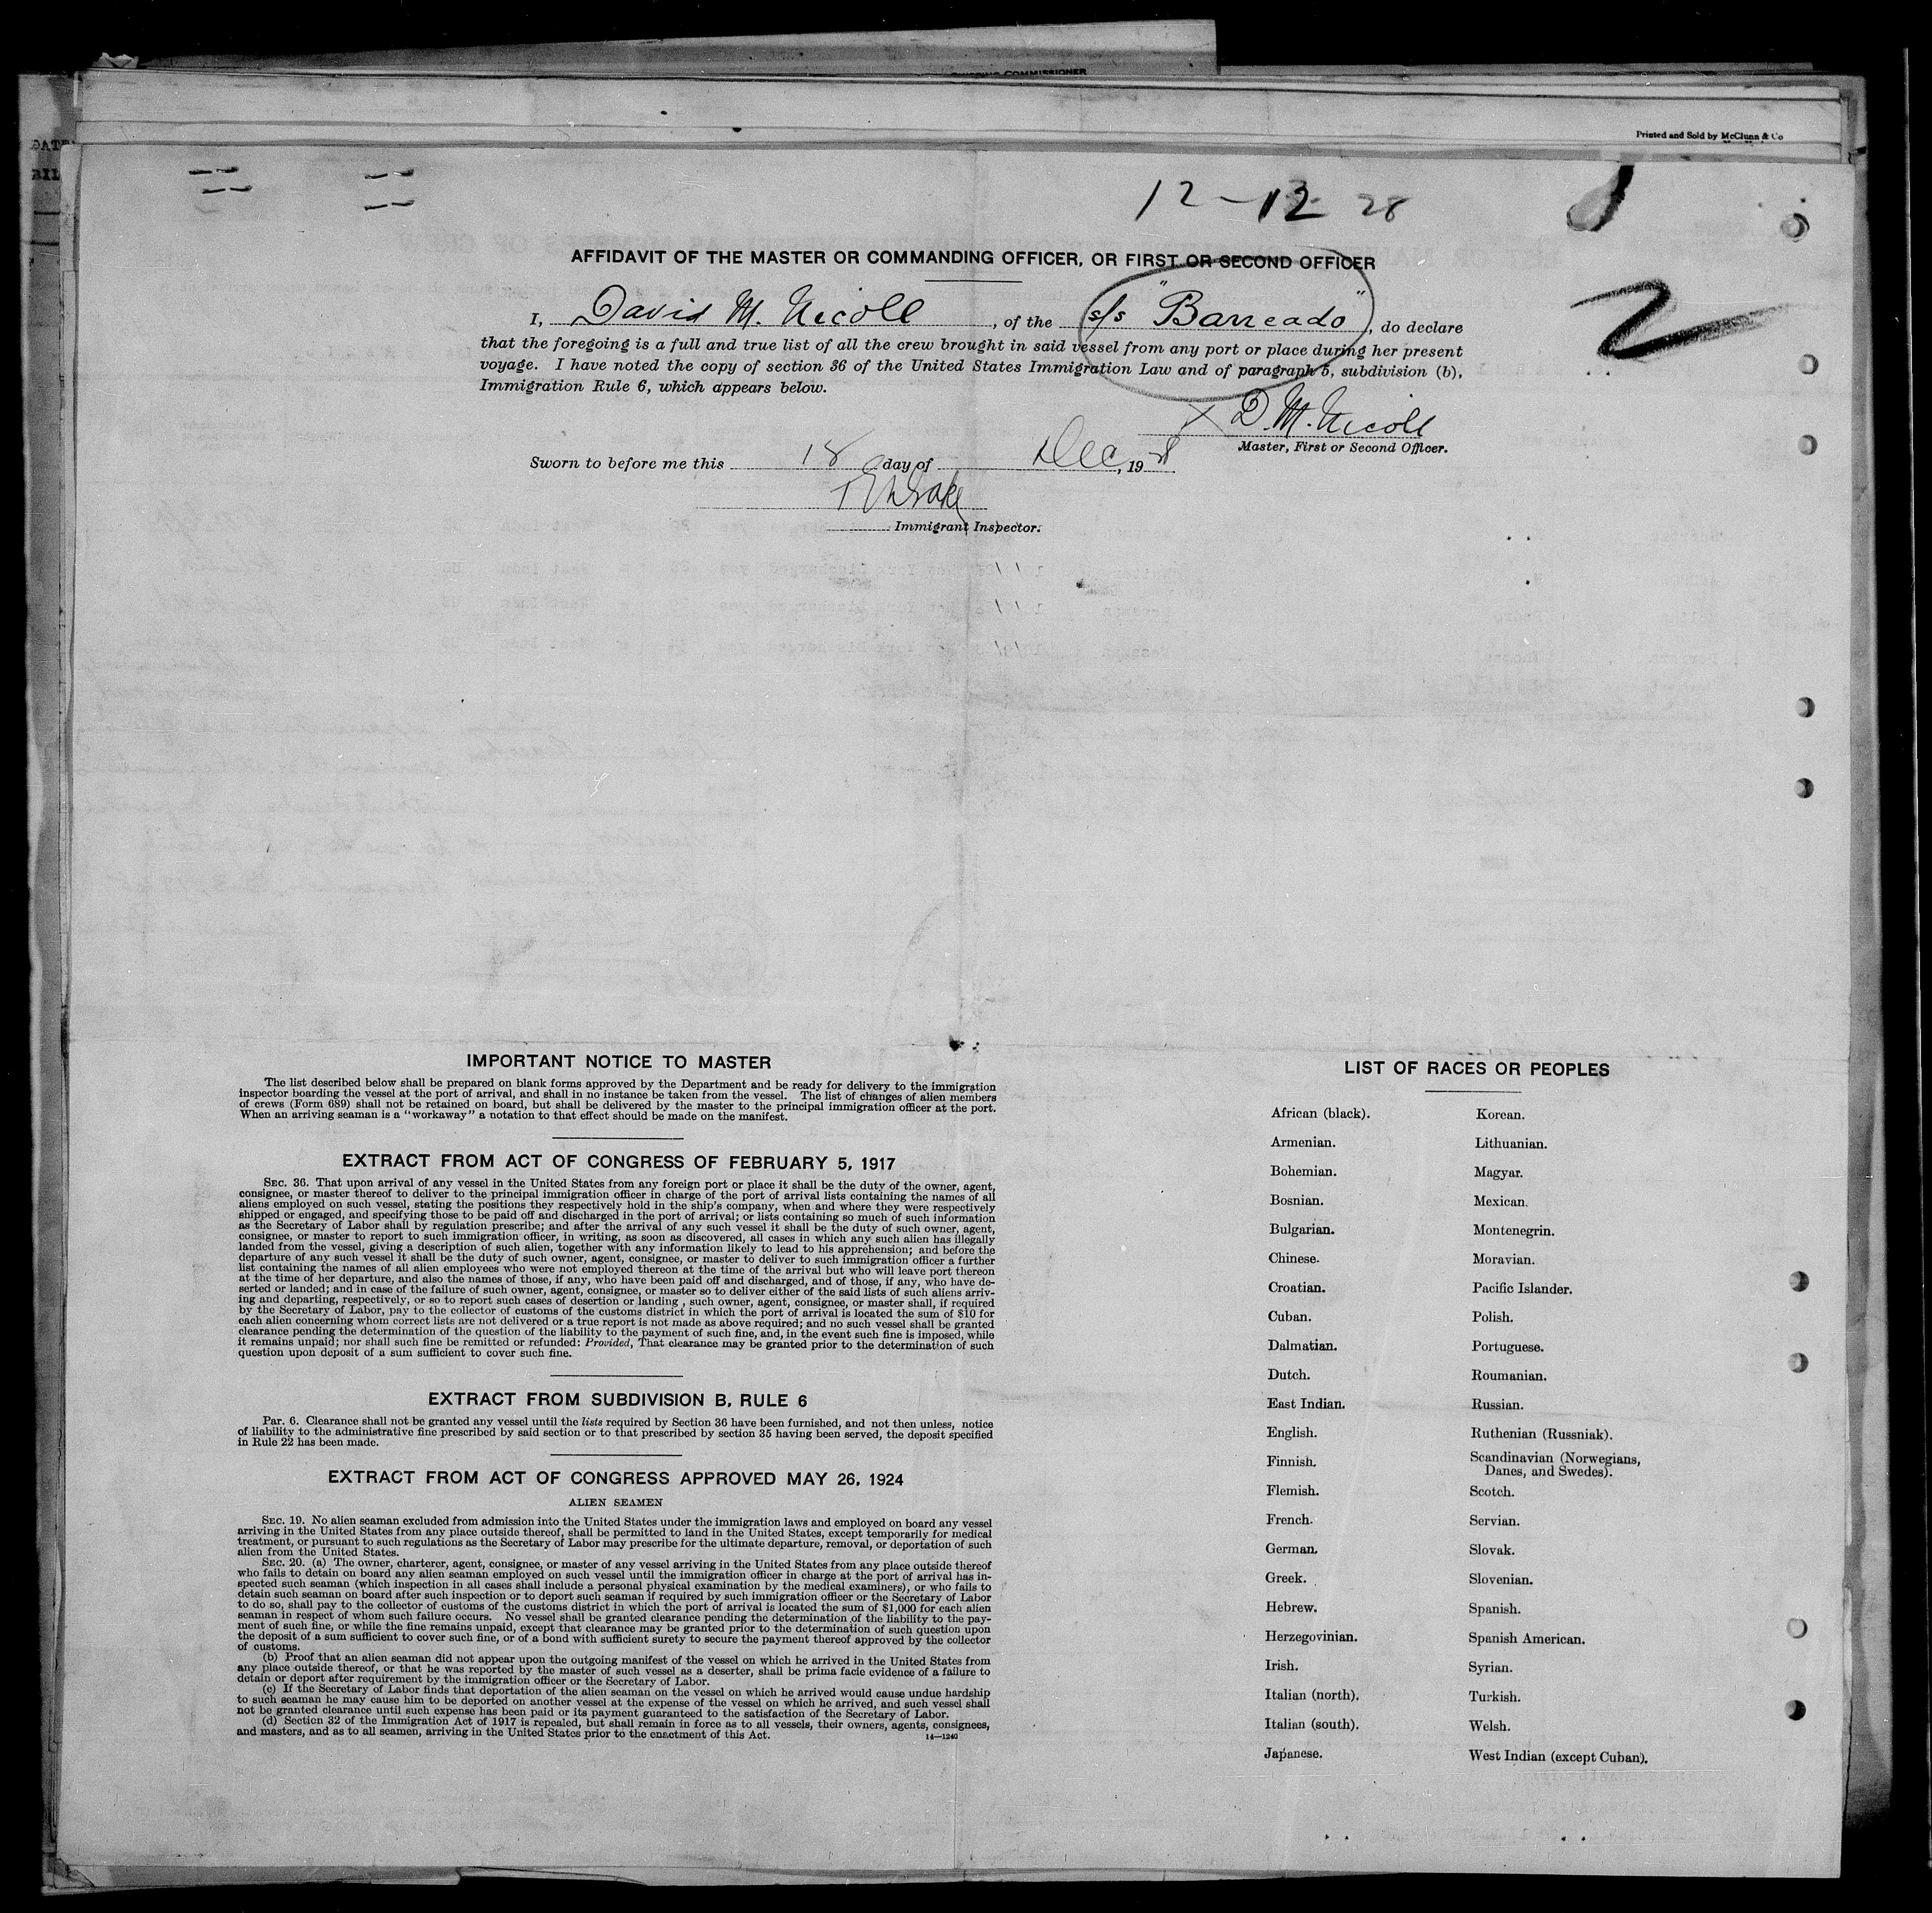 COMMISSIONER
Printed and Sold by McClunn & Co
12-12 28
AFFIDAVIT OF THE MASTER OR COMMANDING OFFICER, OR FIRST OR SECOND OFFICER
I, David M. Nicoll, of the s/s "Barreado", do declare
that the foregoing is a full and true list of all the crew brought in said vessel from any port or place during her present
voyage. I have noted the copy of section 36 of the United States Immigration Law and of paragraph 5, subdivision (b),
Immigration Rule 6, which appears below.
2
X D. M. Nicoll
Master, First or Second Officer.
Sworn to before me this 18 day of Dec, 19
Immigrant Inspector.
IMPORTANT NOTICE TO MASTER
The list described below shall be prepared on blank forms approved by the Department and be ready for delivery to the immigration
inspector boarding the vessel at the port of arrival, and shall in no instance be taken from the vessel. The list of changes of alien members
of crews (Form 689) shall not be retained on board, but shall be delivered by the master to the principal immigration officer at the port.
When an arriving seaman is a "workaway" a notation to that effect should be made on the manifest.
EXTRACT FROM ACT OF CONGRESS OF FEBRUARY 5, 1917
SEC. 36. That upon arrival of any vessel in the United States from any foreign port or place it shall be the duty of the owner, agent,
consignee, or master thereof to deliver to the principal immigration officer in charge of the port of arrival lists containing the names of all
aliens employed on such vessel, stating the positions they respectively hold in the ship's company, when and where they were respectively
shipped or engaged, and specifying those to be paid off and discharged in the port of arrival; or lists containing so much of such information
as the Secretary of Labor shall by regulation prescribe; and after the arrival of any such vessel it shall be the duty of such owner, agent,
consignee, or master to report to such immigration officer, in writing, as soon as discovered, all cases in which any such alien has illegally
landed from the vessel, giving a description of such alien, together with any information likely to lead to his apprehension; and before the
departure of any such vessel it shall be the duty of such owner, agent, consignee, or master to deliver to such immigration officer a further
list containing the names of all alien employees who were not employed thereon at the time of the arrival but who will leave port thereon
at the time of her departure, and also the names of those, if any, who have been paid off and discharged, and of those, if any, who have de-
serted or landed; and in case of the failure of such owner, agent, consignee, or master so to deliver either of the said lists of such aliens arriv-
ing and departing, respectively, or so to report such cases of desertion or landing , such owner, agent, consignee, or master shall, if required
by the Secretary of Labor, pay to the collector of customs of the customs district in which the port of arrival is located the sum of $10 for
each alien concerning whom correct lists are not delivered or a true report is not made as above required; and no such vessel shall be granted
clearance pending the determination of the question of the liability to the payment of such fine, and, in the event such fine is imposed, while
it remains unpaid; nor shall such fine be remitted or refunded: Provided, That clearance may be granted prior to the determination of such
question upon deposit of a sum sufficient to cover such fine.
EXTRACT FROM SUBDIVISION B, RULE 6
Par. 6. Clearance shall not be granted any vessel until the lists required by Section 36 have been furnished, and not then unless, notice
of liability to the administrative fine prescribed by said section or to that prescribed by section 35 having been served, the deposit specified
in Rule 22 has been made.
EXTRACT FROM ACT OF CONGRESS APPROVED MAY 26, 1924
ALIEN SEAMEN
SEC. 19. No alien seaman excluded from admission into the United States under the immigration laws and employed on board any vessel
arriving in the United States from any place outside thereof, shall be permitted to land in the United States, except temporarily for medical
treatment, or pursuant to such regulations as the Secretary of Labor may prescribe for the ultimate departure, removal, or deportation of such
alien from the United States.
SEC. 20. (a) The owner, charterer, agent, consignee, or master of any vessel arriving in the United States from any place outside thereof
who fails to detain on board any alien seaman employed on such vessel until the immigration officer in charge at the port of arrival has in-
spected such seaman (which inspection in all cases shall include a personal physical examination by the medical examiners), or who fails to
detain such seaman on board after such inspection or to deport such seaman if required by such immigration officer or the Secretary of Labor
to do so, shall pay to the collector of customs of the customs district in which the port of arrival is located the sum of $1,000 for each alien
seaman in respect of whom such failure occurs. No vessel shall be granted clearance pending the determination of the liability to the pay-
ment of such fine, or while the fine remains unpaid, except that clearance may be granted prior to the determination of such question upon
the deposit of a sum sufficient to cover such fine, or of a bond with sufficient surety to secure the payment thereof approved by the collector
of customs.
(b) Proof that an alien seaman did not appear upon the outgoing manifest of the vessel on which he arrived in the United States from
any place outside thereof, or that he was reported by the master of such vessel as a deserter, shall be prima facie evidence of a failure to
detain or deport after requirement by the immigration officer or the Secretary of Labor.
(c) If the Secretary of Labor finds that deportation of the alien seaman on the vessel on which he arrived would cause undue hardship
to such seaman he may cause him to be deported on another vessel at the expense of the vessel on which he arrived, and such vessel shall
not be granted clearance until such expense has been paid or its payment guaranteed to the satisfaction of the Secretary of Labor.
(d) Section 32 of the Immigration Act of 1917 is repealed, but shall remain in force as to all vessels, their owners, agents, consignees,
and masters, and as to all seamen, arriving in the United States prior to the enactment of this Act.
14—1240
LIST OF RACES OR PEOPLES
African (black).
Armenian.
Bohemian.
Bosnian.
Bulgarian.
Chinese.
Croatian.
Cuban.
Dalmatian.
Dutch.
East Indian.
English.
Finnish.
Flemish.
French.
German.
Greek.
Hebrew.
Herzegovinian.
Irish.
Italian (north).
Italian (south).
Japanese.
Korean.
Lithuanian.
Magyar.
Mexican.
Montenegrin.
Moravian.
Pacific Islander.
Polish.
Portuguese.
Roumanian.
Russian.
Ruthenian (Russniak).
Scandinavian (Norwegians,
Danes, and Swedes).
Scotch.
Servian.
Slovak.
Slovenian.
Spanish.
Spanish American.
Syrian.
Turkish.
Welsh.
West Indian (except Cuban).